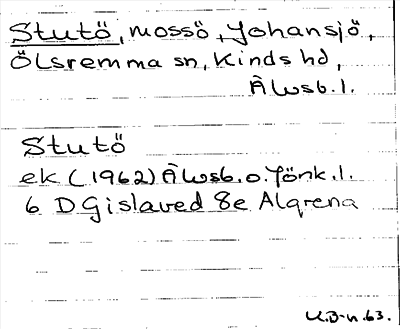 Stutö, mossö, Johansjö,
Ölsremma sn, Kinds hd,
Älvsb. l.
Stutö
ek (1962) Älvsb. o. Jönk. l.
6 D Gislaved 8e Algrena
U.B-n. 63.